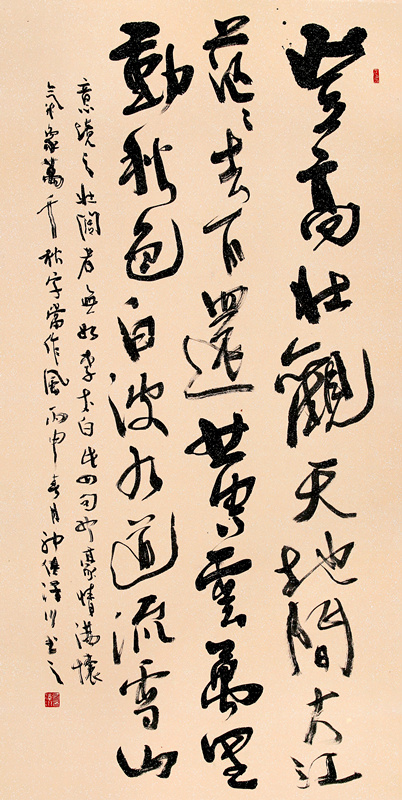 登高壯觀天地間大江
茫茫去不還黃雲萬里
動秋色白波九道流雪山
意境之壯闊者無如李太白此四句也豪情滿懷
氣象萬千秋字當作風丙申春月書之